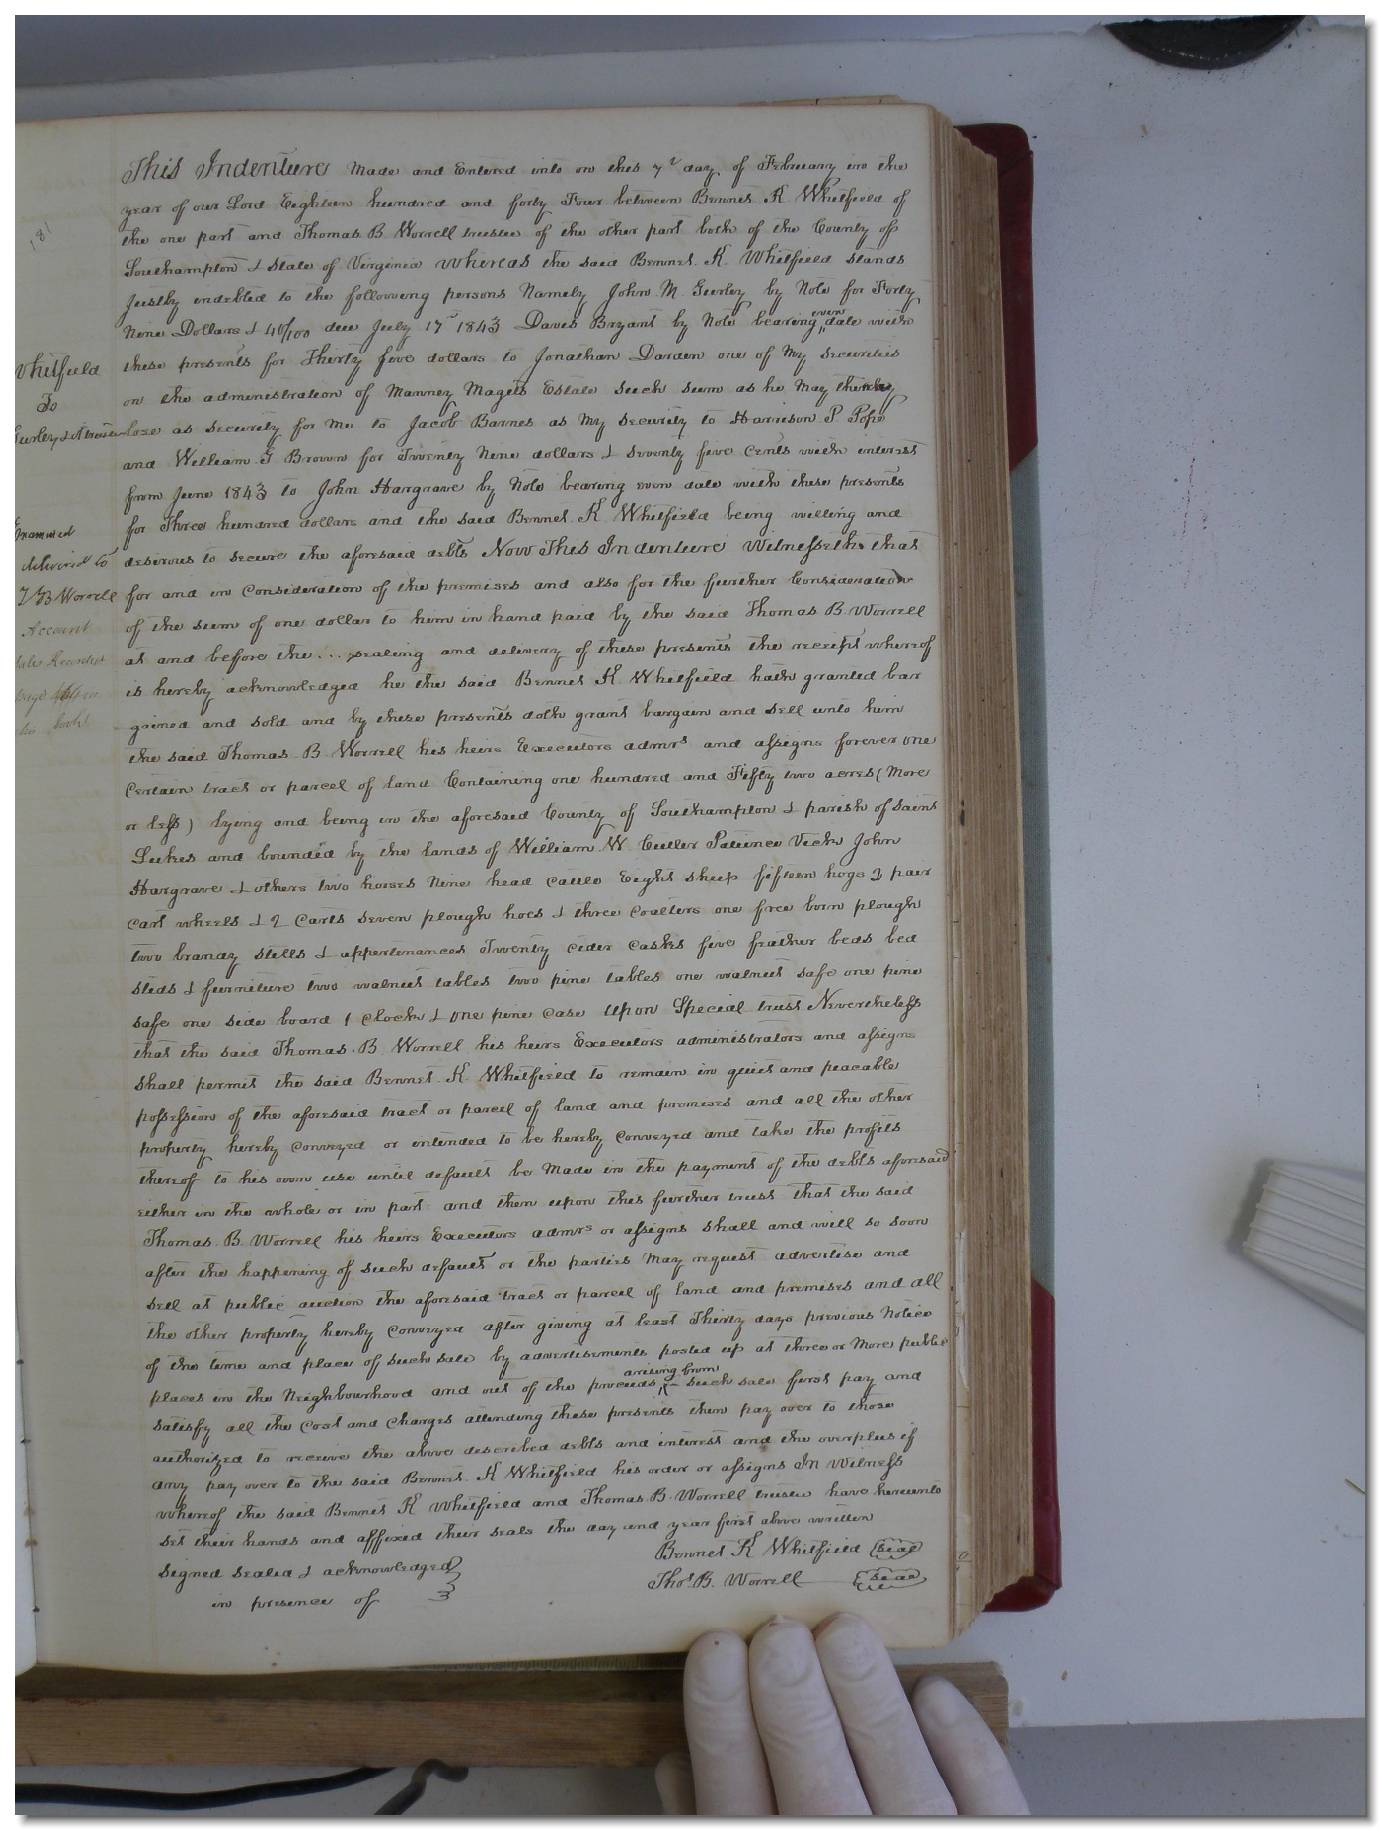 181
This Indenture Made and Entered into on this 7th day of February in the
year of our Lord Eighteen hundred and forty Four between Bennet K Whitfield of
the one part and Thomas B Worrell trustee of the other part both of the County of
Southampton & State of Virginia Whereas the said Bennet K. Whitfield stands
Justly indebted to the following persons Namely John M. Gurley by Note for Forty
Nine Dollars & 40/100 due July 17th 1843 Davis Bryant by Note bearing even date with
these presents for Thirty five dollars to Jonathan Darden one of My securities
on the administration of Manney Magets Estate such sum as he May thereby
lose as security for Me to Jacob Barnes as My security to Harrison P Pope
and William G Brown for Twenty Nine dollars & seventy five Cents with interest
from June 1843 to John Hargrave by Note bearing even date with these presents
for Three hundred dollars and the said Bennet K Whitfield being willing and
desirous to secure the aforesaid debts Now This Indenture Witnesseth that
for and in Consideration of the premises and also for the further Consideration
of the sum of one dollar to him in hand paid by the said Thomas B. Worrell
at and before the ... sealing and delivery of these presents the receipt whereof
is hereby acknowledged he the said Bennet K Whitfield hath granted bar
gained and sold and by these presents doth grant bargain and sell unto him
the said Thomas B Worrell his heirs Executors admrs and assigns forever one
Certain tract or parcel of land Containing one hundred and Fifty two acres (More
or less) lying and being in the aforesaid County of Southampton & parish of Saint
Lukes and bounded by the lands of William W Cutler Patience Vick John
Hargrave & others two horses Nine head cattle Eight sheep fifteen hogs 1 pair
cart wheels & 2 Carts seven plough hoes & three Coalters one free born plough
two brandy stills & appertenances Twenty cider casks five feather beds bed
steds & furniture two walnut tables two pine tables one walnut safe one pine
safe one side board 1 clock & one pine case Upon Special trust Nevertheless
that the said Thomas B Worrell his heirs Executors administrators and assigns
shall permit the said Bennet K. Whitfield to remain in quiet and peacable
possession of the aforesaid tract or parcel of land and premises and all the other
property hereby Conveyed or intended to be hereby Conveyed and take the profits
thereof to his own use until default be Made in the payment of the debts aforesaid
either in the whole or in part and then upon this further trust that the said
Thomas B. Worrell his heirs Executors admrs or assigns shall and will so soon
after the happening of such default or the parties May request advertise and
sell at public auction the aforesaid tract or parcel of land and premises and all
the other property hereby Conveyed after giving at least Thirty days previous Notice
of the time and place of such sale by advertisements posted up at three or More public
places in the Neighbourhood and out of the proceeds arising from such sale first pay and
satisfy all the Cost and Charges attending these presents then pay over to those
authorized to receive the above described debts and interest and the overplus if
any pay over to the said Bennet K Whitfield his order or assigns In Witness
whereof the said Bennet K Whitfield and Thomas B. Worrell trustee have hereunto
set their hands and affixed their seals the day and year first above written
Bennet K Whitfield Seal
Signed Sealed & acknowledged
Thos B. Worrell Seal
in presence of
Whitfield
To
Gurley &
Examined
delivered to
T B Worrell
Account
Sales Recorded
page